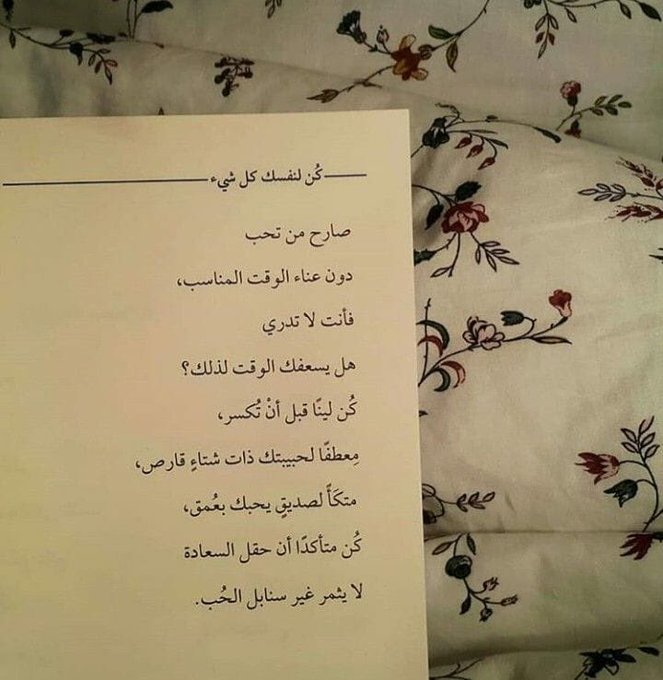 كُن لنفسك كل شيء
صارح من تحب
دون عناء الوقت المناسب،
فأنت لا تدري
هل يسعفك الوقت لذلك؟
كُن لينًا قبل أنْ تُكسر،
مِعطفًا لحبيبتك ذات شتاءٍ قارص،
متكَأً لصديقٍ يحبك بعُمق،
كُن متأكدًا أن حقل السعادة
لا يثمر غير سنابل الحُب.